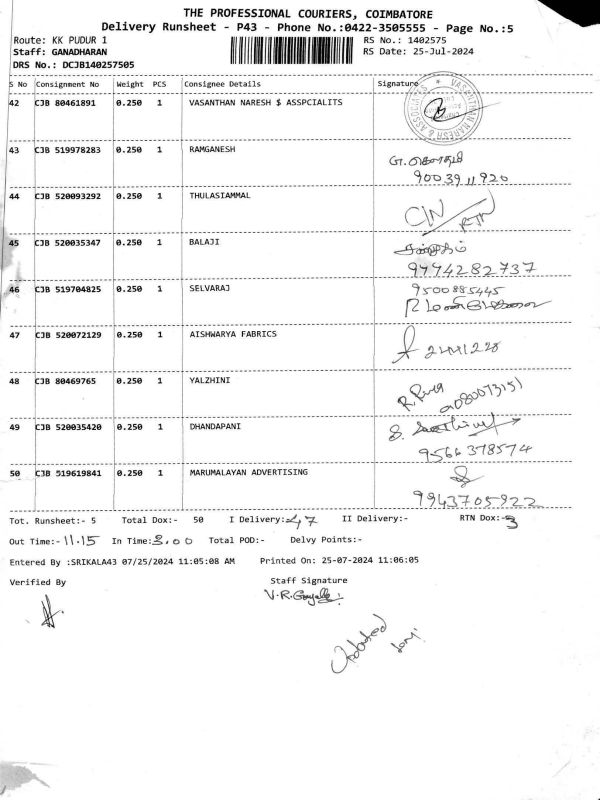 THE PROFESSIONAL COURIERS, COIMBATORE
Delivery Runsheet - P43 - Phone No.:0422-3505555 - Page No.:5
Route: KK PUDUR 1 RS No.: 1402575
Staff: GANADHARAN RS Date: 25-Jul-2024
DRS No.: DCJB140257505
S No Consignment No Weight PCS Consignee Details Signature
42 CJB 80461891 0.250 1 VASANTHAN NARESH $ ASSPCIALITS
VASANTHAN NARESH & ASSOCIATES
43 CJB 519978283 0.250 1 RAMGANESH
9003911920
44 CJB 520093292 0.250 1 THULASIAMMAL C/N RTN
45 CJB 520035347 0.250 1 BALAJI
9994282737
46 CJB 519704825 0.250 1 SELVARAJ 9500885445
47 CJB 520072129 0.250 1 AISHWARYA FABRICS
2441228
48 CJB 80469765 0.250 1 YALZHINI
9080073151
49 CJB 520035420 0.250 1 DHANDAPANI
9566378574
50 CJB 519619841 0.250 1 MARUMALAYAN ADVERTISING
9943705922
Tot. Runsheet:- 5 Total Dox:- 50 I Delivery:- 47 II Delivery:- RTN Dox:- 3
Out Time:- 11.15 In Time: 3.00 Total POD:- Delvy Points:-
Entered By :SRIKALA43 07/25/2024 11:05:08 AM Printed On: 25-07-2024 11:06:05
Verified By Staff Signature
Updated